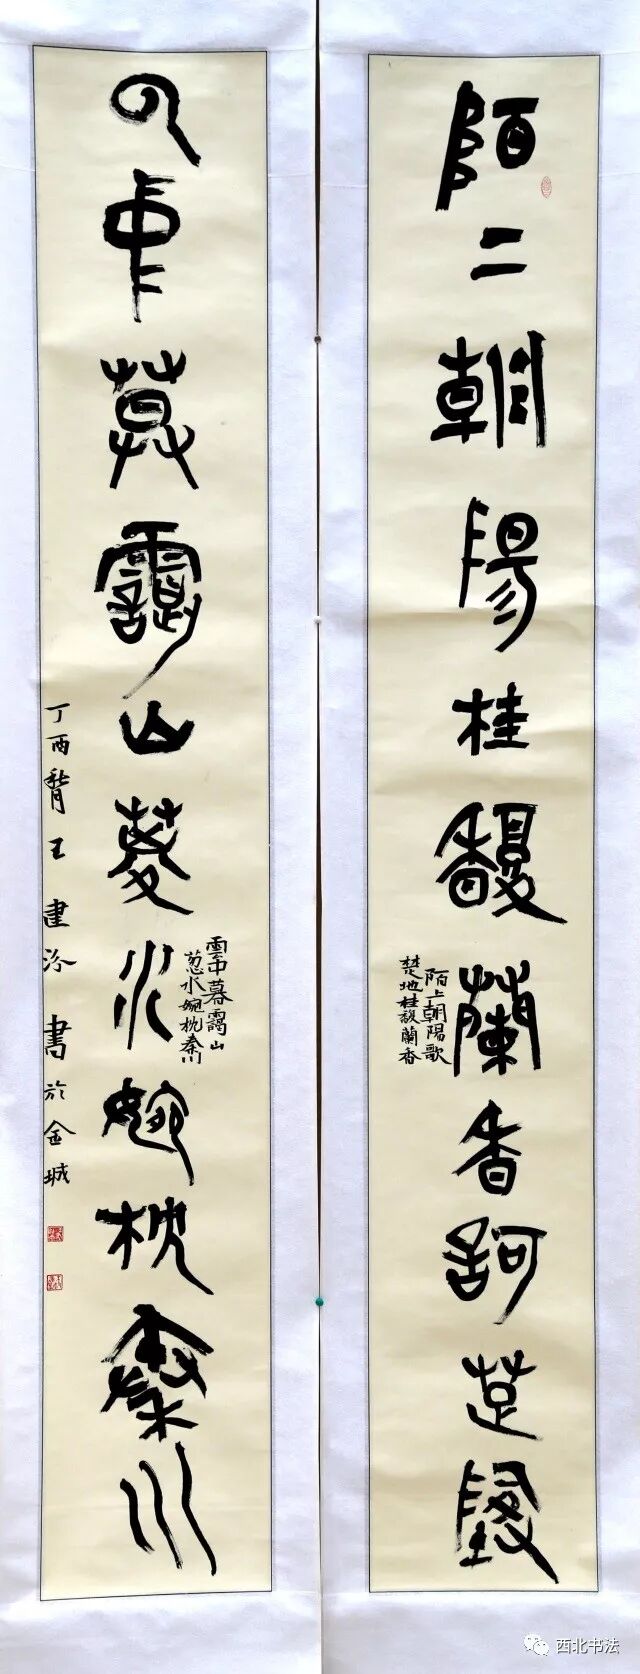 陌上朝陽桂馥蘭香訶楚墬
陌上朝陽歌
楚地桂馥蘭香
云中暮靄山葱水婉枕秦川
雲中暮靄山
葱水婉枕秦川
丁酉王建書於金城
西北书法